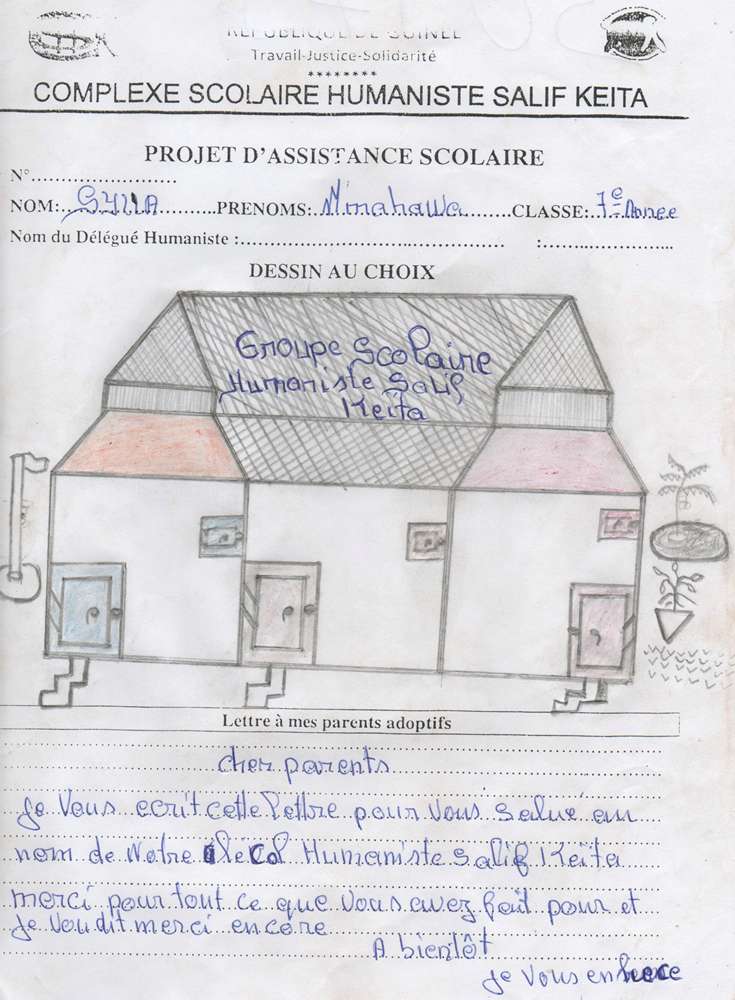 REPUBLIQUE DE GUINEE
Travail-Justice-Solidarité
********
COMPLEXE SCOLAIRE HUMANISTE SALIF KEITA
PROJET D'ASSISTANCE SCOLAIRE
N°........................
NOM: SYLLA PRENOMS: Minahawa CLASSE: 7e Annee
Nom du Délégué Humaniste : :
DESSIN AU CHOIX
Groupe Scolaire
Humaniste Salif
Keïta
Lettre à mes parents adoptifs
cher parents
Je Vous ecrit cette lettre pour Vous salue au
nom de Notre lecol Humaniste Salif Keïta
merci pour tout ce que Vous avez fait pour et
Je Vou dit merci encore
A bientôt
Je Vous